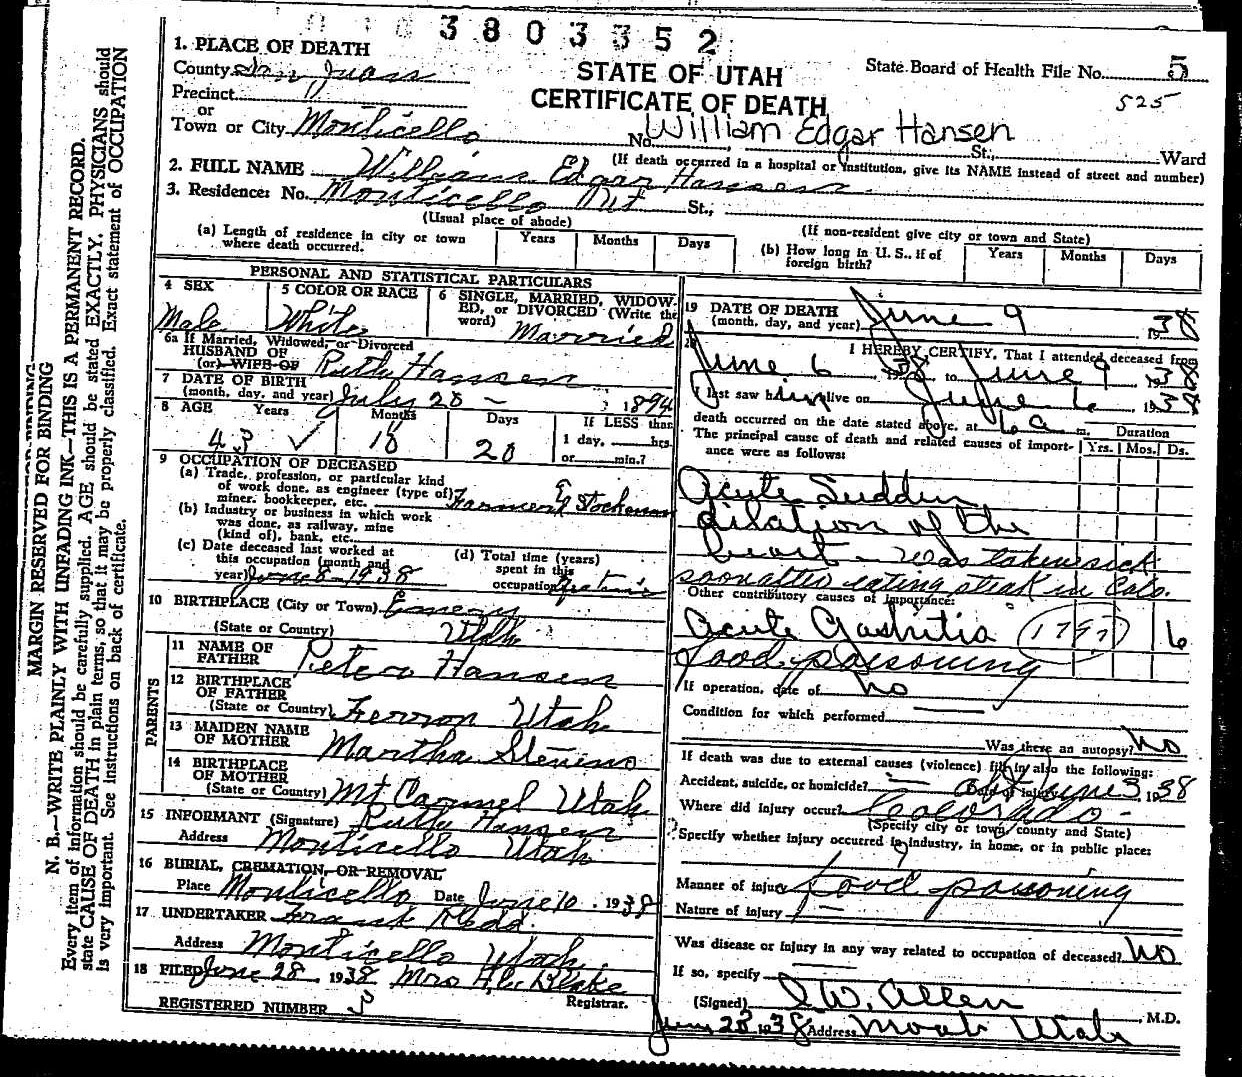 3803352
1. PLACE OF DEATH
County San Juan
STATE OF UTAH
State Board of Health File No. 5
Precinct
CERTIFICATE OF DEATH
525
or
Town or City Monticello No. William Edgar Hansen St., Ward
(If death occurred in a hospital or institution, give its NAME instead of street and number)
2. FULL NAME William Edgar Hansen
3. Residence: No. Monticello Ut St.,
(Usual place of abode)
(If non-resident give city or town and State)
(a) Length of residence in city or town where death occurred. Years Months Days
(b) How long in U. S., if of foreign birth? Years Months Days
PERSONAL AND STATISTICAL PARTICULARS
4 SEX Male
5 COLOR OR RACE White
6 SINGLE, MARRIED, WIDOWED, or DIVORCED (Write the word) Married
6a If Married, Widowed, or Divorced
HUSBAND OF
(or) WIFE OF Ruth Hansen
7 DATE OF BIRTH
(month, day, and year) July 20 - 1894
8 AGE Years Months Days If LESS than
43 10 20 1 day, hrs.
or min.?
9 OCCUPATION OF DECEASED
(a) Trade, profession, or particular kind
of work done, as engineer (type of)
miner, bookkeeper, etc. Farmer & Stockman
(b) Industry or business in which work
was done, as railway, mine
(kind of), bank, etc.
(c) Date deceased last worked at
this occupation (month and
year) June 8 - 1938
(d) Total time (years)
spent in this
occupation
10 BIRTHPLACE (City or Town) Emery
(State or Country) Utah
PARENTS
11 NAME OF
FATHER Hansen
12 BIRTHPLACE
OF FATHER
(State or Country) Ferron Utah
13 MAIDEN NAME
OF MOTHER Martha
14 BIRTHPLACE
OF MOTHER
(State or Country) Mt Carmel Utah
15 INFORMANT (Signature) Ruth Hansen
Address Monticello Utah
16 BURIAL, CREMATION, OR REMOVAL
Place Monticello Date June 10, 1938
17 UNDERTAKER Frank Redd.
Address Monticello Utah.
18 FILED June 28 1938 Mrs Blake
Registrar.
REGISTERED NUMBER 5
19 DATE OF DEATH
(month, day, and year) June 9 1938
20 I HEREBY CERTIFY, That I attended deceased from
June 6, 1938 to June 9, 1938
I last saw him alive on June 6, 1938
death occurred on the date stated above, at 6 a m. Duration
The principal cause of death and related causes of importance were as follows: Yrs. Mos. Ds.
Acute Sudden
dilation of the
heart - was taken sick
soon after eating steak in Colo.
Other contributory causes of importance:
Acute Gastritis 6
food poisoning
If operation, date of no
Condition for which performed
Was there an autopsy? no
If death was due to external causes (violence) fill in also the following:
Accident, suicide, or homicide? — Date of injury abt June 3 1938
Where did injury occur? Colorado -
(Specify city or town, county and State)
Specify whether injury occurred in industry, in home, or in public place:
?
Manner of injury food poisoning
Nature of injury —
Was disease or injury in any way related to occupation of deceased? No
If so, specify
(Signed) I. W. Allen, M.D.
June 28 1938 Address Moab Utah
MARGIN RESERVED FOR BINDING
N. B.—WRITE PLAINLY WITH UNFADING INK—THIS IS A PERMANENT RECORD.
Every item of information should be carefully supplied. AGE should be stated EXACTLY. PHYSICIANS should
state CAUSE OF DEATH in plain terms, so that it may be properly classified. Exact statement of OCCUPATION
is very important. See instructions on back of certificate.